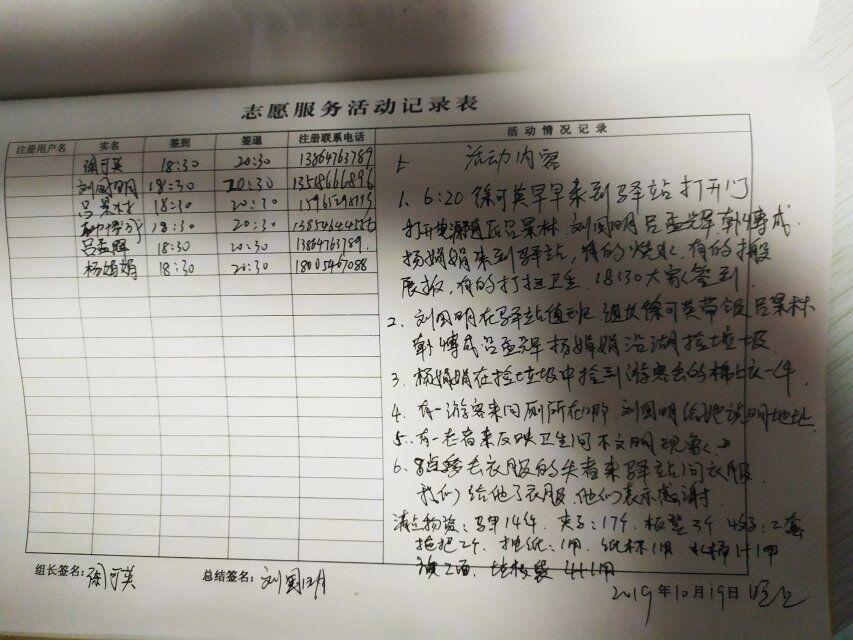 志愿服务活动记录表
注册用户名 实名 签到 签退 注册联系电话 活动情况记录
徐可英 18:30 20:30 13864763789
刘国明 18:30 20:30 13518666896
吕景林 18:30 20:30
韩博成 18:30 20:30
吕孟辉 18:30 20:30 13864763789.
杨娟娟 18:30 20:30 18005467088
活动内容
1. 6:20 徐可英早早来到驿站打开门
打开电源 吕景林 刘国明 吕孟辉 韩博成
杨娟娟来到驿站,有的烧水,有的搬
展板,有的打扫卫生. 18:30大家签到
2. 刘国明在驿站值班 组长徐可英带领吕景林
韩博成 吕孟辉 杨娟娟沿湖捡垃圾
3. 杨娟娟在捡垃圾中捡到游客丢的棉上衣一件
4. 有一游客来问厕所在哪 刘国明给他说明地址
5. 有一老者来反映卫生间不文明现象.
6. 8点多丢衣服的失者来驿站问衣服
我们给他了衣服,他们表示感谢
清点物资: 马甲14件. 夹子:17个. 板凳3个
拖把2个. 抽纸:1用. 纸杯1用 水桶1个1用
旗2面. 垃圾袋
组长签名:徐可英 总结签名:刘国明
2019年10月19日 晚上